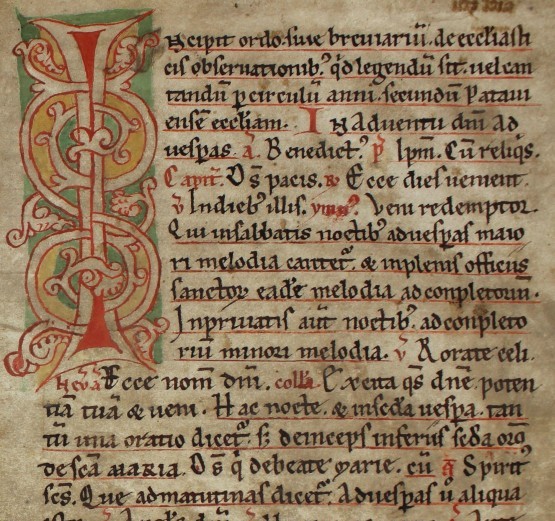 Incipit ordo. siue breviariũ. de eccl̃iasti
cis observationib;ˀ qd̾ legendũ sit. vel can
tandũ ꝑ circulũ anni. secundũ Patavi
ensẽ eccl̃iam. IN Adventu dñi ad
vesp̾as. a. Benedict;ˀ pˢ Ipm̃. Cũ reliqs.
Capit̃. Ds̃ pacis. ꝶ Ecce dies venient.
v̾ In dieb;ˀ illis. ymnꝰ. Veni redemptor.
Qui in sabbatis noctib;ˀ ad vesp̾as maio
ri melodia cantet᷑. & in plenis officiis
sanctoꝝ eadẽ melodia ad conpletoriũ.
In privatis aut̃ noctib;ˀ. ad conpleto
riũ minori melodia. v̾ Rorate celi.
Ecce nom̃ dñi. coll̃a. Excita qs̃ dñe. poten
tiã tuã & veni. Hac nocte. & in sc̃da vesp̾a. tan
tũ una oratio dicet᷑. sꝫ deinceps inferius sc̃da oro᷑
de sc̃a MARIA. Ds̃ q̾ de beate marie. cũ Spirit;ˀ
sc̃s. Que ad matutinas dicet᷑. Ad vesp̾as ũ aliqua